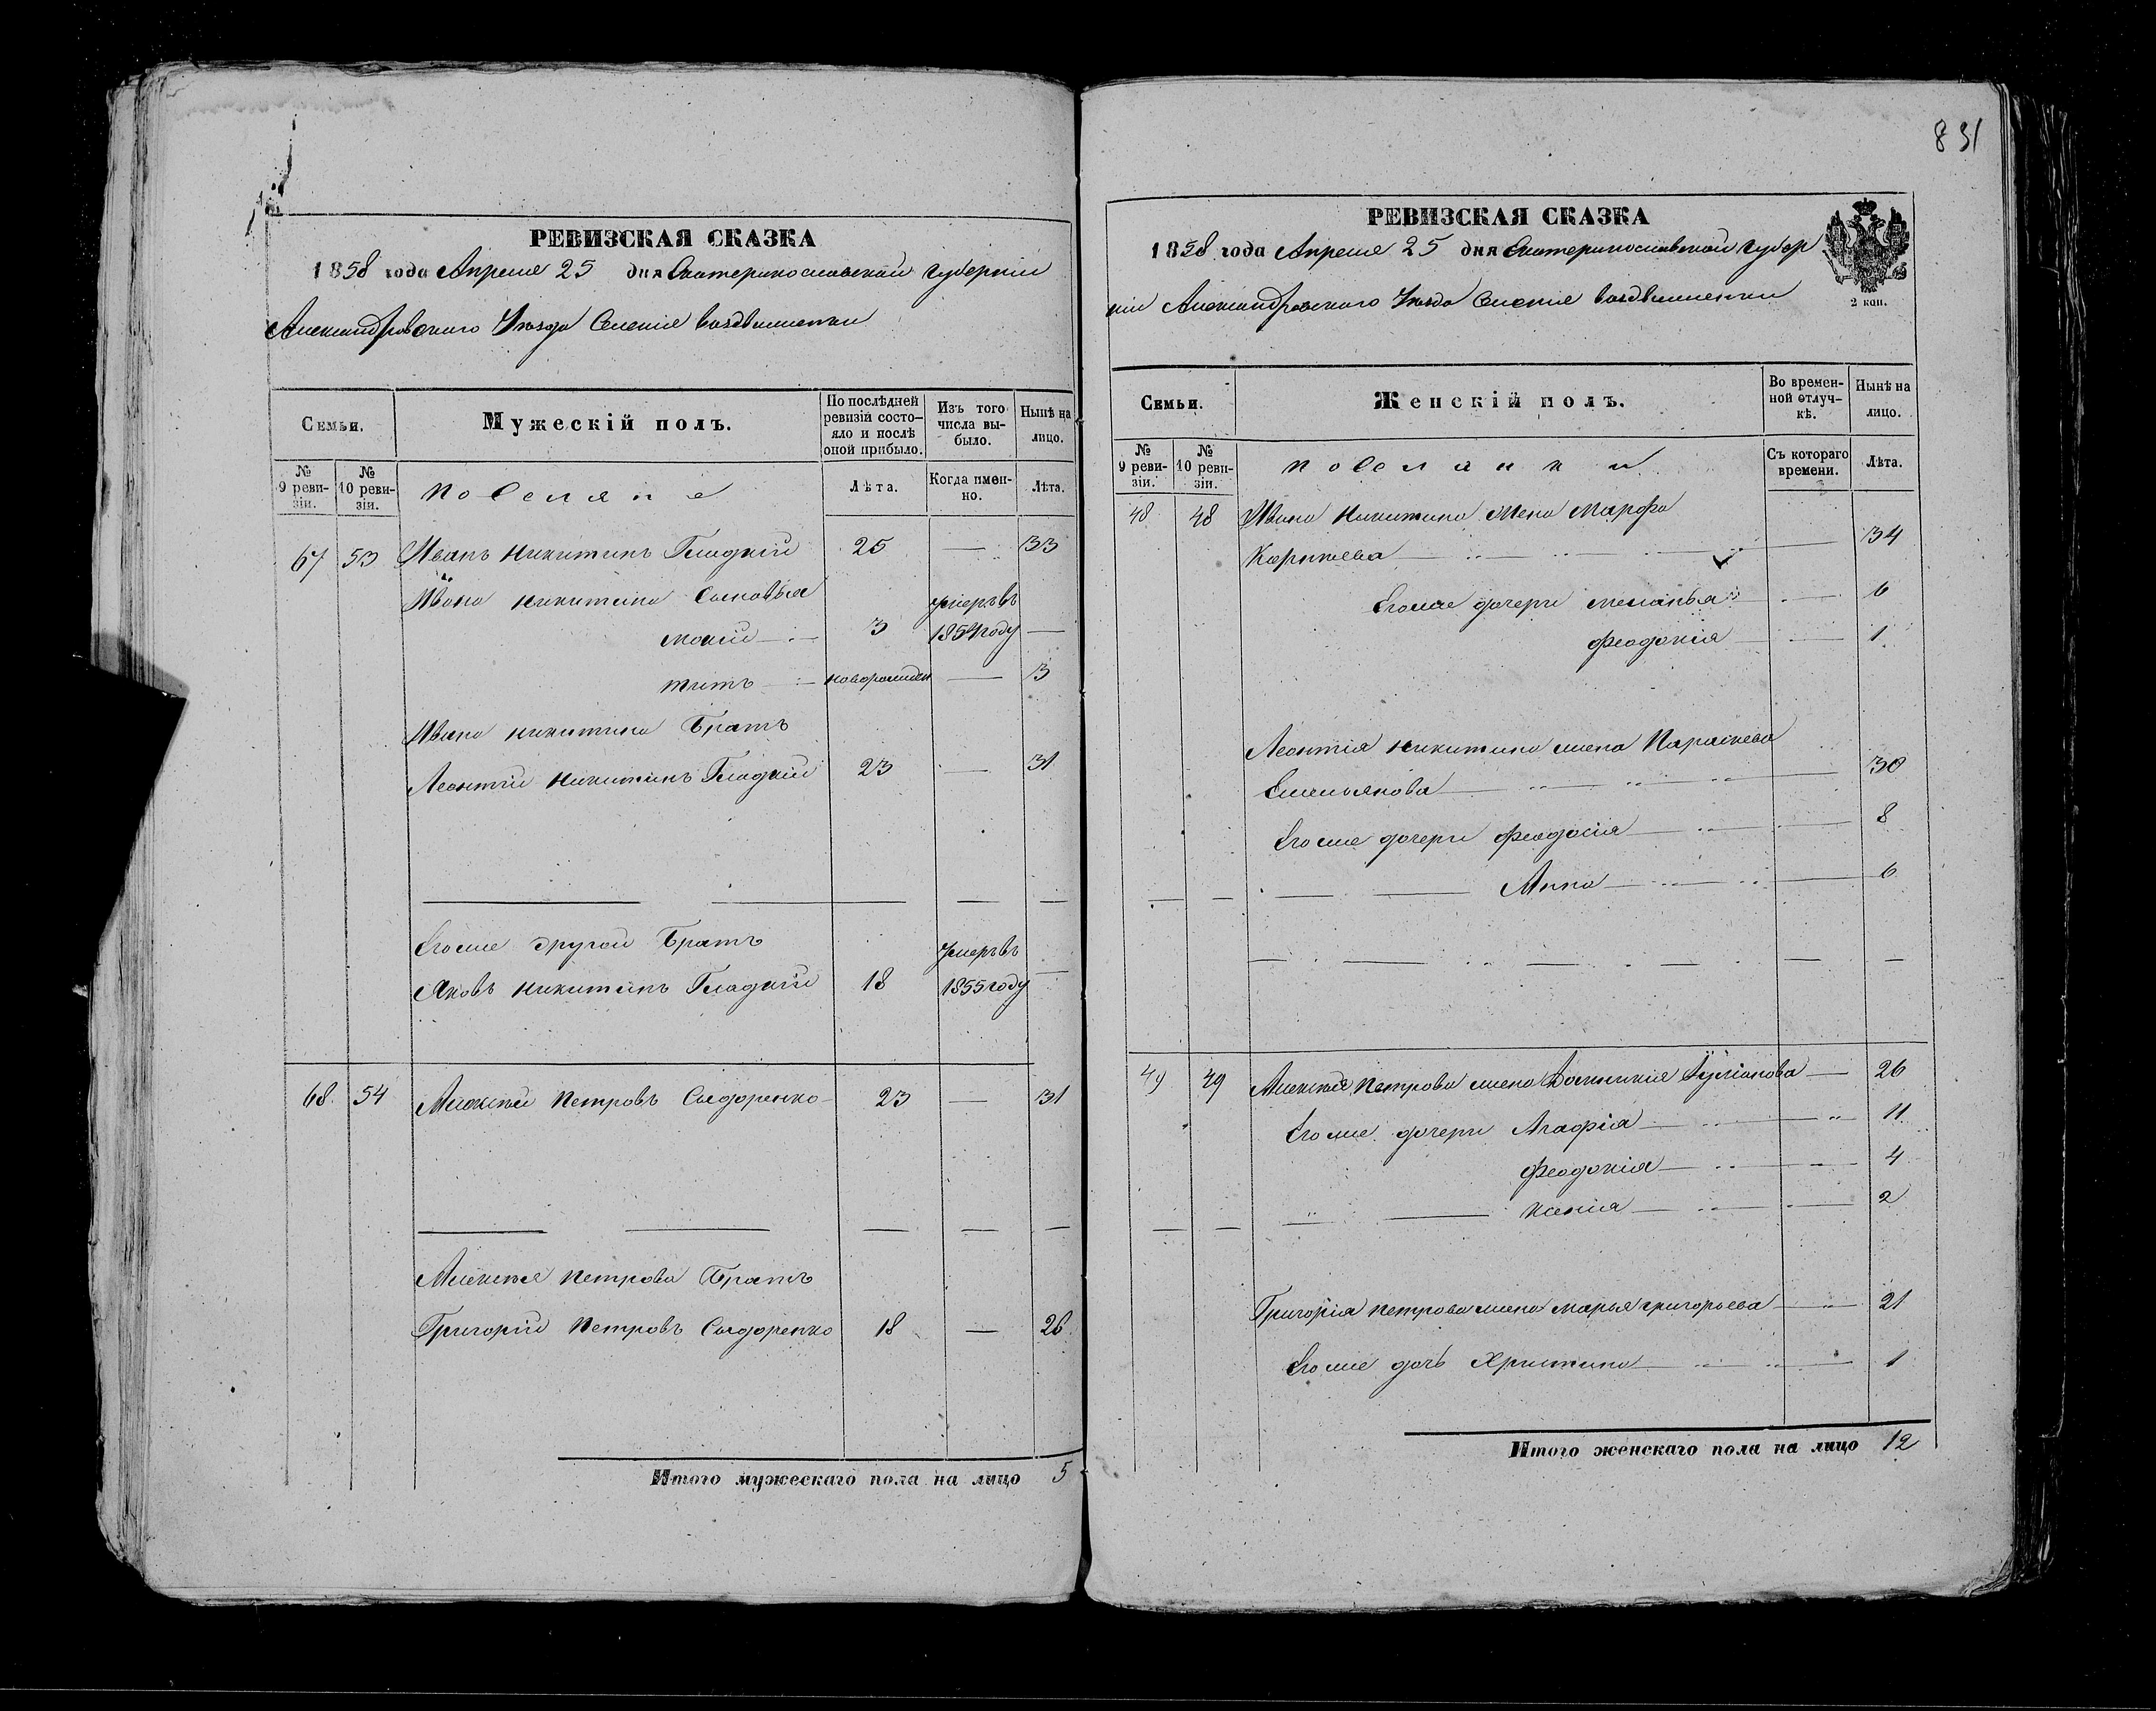 РЕВИЗСКАЯ СКАЗКА
1858 года Апреля 25 дня Екатеринославской губернии
Александровского Уезда Селения Воздвиженки
Семьи.
Мужескій полъ.
По послѣдней ревизіи состо-
яло и послѣ оной прибыло.
Изъ того числа вы-
было.
Нынѣ на лицо.
№ 9 реви-
зіи.
№ 10 реви-
зіи.
Поселяне
Лѣта.
Когда имен-
но.
Лѣта.
67 53 Иванъ Никитинъ Гладкій 25 — 33
Ивана Никитина Сыновья
Мокій 3 умеръ въ 1854 году —
Титъ новорожден — 3
Ивана Никитина Братъ
Леонтій Никитинъ Гладкій 23 — 31
Егоже другой Братъ
Яковъ Никитинъ Гладкій 18 умеръ въ 1855 году —
68 54 Алексѣй Петровъ Сыдоренко 23 — 31
Алексѣя Петрова Братъ
Григорій Петровъ Сыдоренко 18 — 26
Итого мужескаго пола на лицо 5
831
РЕВИЗСКАЯ СКАЗКА
1858 года Апреля 25 дня Екатеринославской губер
ніи Александровского Уезда Селения Воздвиженки
2 коп.
Семьи.
Женскій полъ.
Во времен-
ной отлуч-
кѣ.
Нынѣ на лицо.
№ 9 реви-
зіи.
№ 10 реви-
зіи.
поселянки
Съ котораго времени.
Лѣта.
48 48 Ивана Никитина Жена Марфа
Корнѣева — 34
Егоже дочери Меланья — 6
Феодокія — 1
Леонтія Никитина жена Параскева
Емельянова — 30
Егоже дочери Феодосія — 8
Анна — 6
49 49 Алексѣя Петрова жена Домникія — 26
Егоже дочери Агафія — 11
Феодокія — 4
Ксенія — 2
Григорія Петрова жена Марья Григорьева — 21
Егоже дочь Христина — 1
Итого женскаго пола на лицо 12